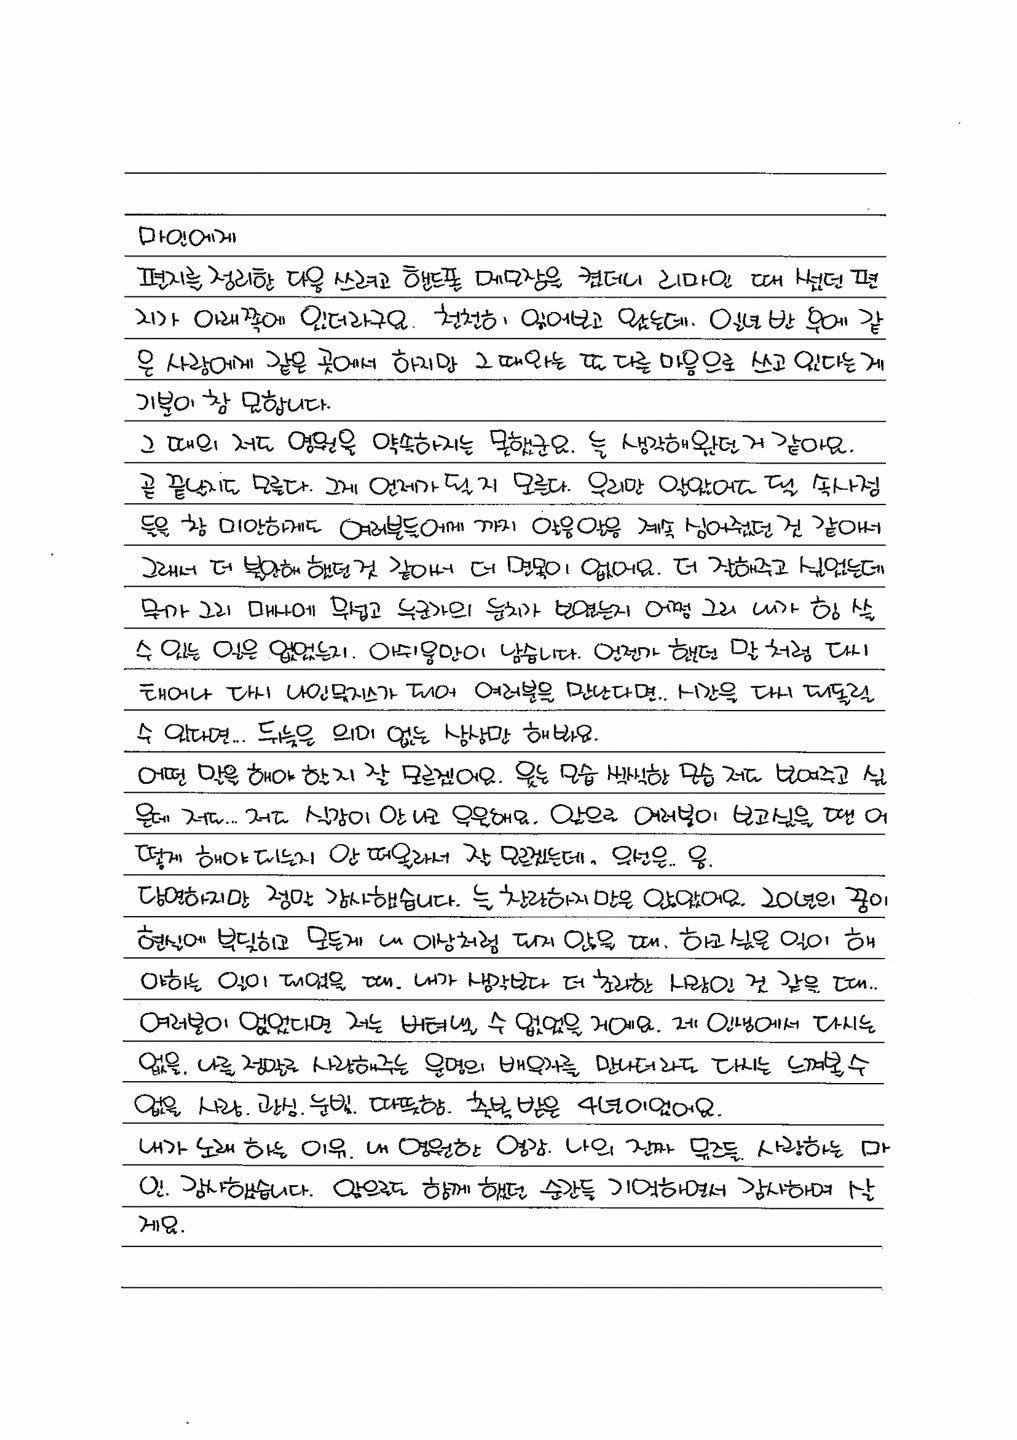 마인에게
편지를 정리한 다음 쓰려고 핸드폴 메모장을 켰더니 리마인 때 썼던 편
지가 아래쪽에 있더라구요. 천천히 읽어보고 왔는데. 일년 반 후에 같
은 사람에게 같은 곳에서 하지만 그 때와는 또 다른 마음으로 쓰고 있다는 게
기분이 참 묘합니다.
그 때의 저도 영원을 약속하지는 못했군요. 늘 생각해왔던 거 같아요.
곧 끝난지도 모른다. 그게 언제가 될 지 모른다. 우리만 알았어도 될 속사정
들을 참 미안하게도 여러분들에게 까지 알음알음 계속 심어줬던 것 같아서
그래서 더 불안해 했던 것 같아서 더 면목이 없어요. 더 잘해주고 싶었는데
뭐가 그리 매사에 무섭고 누군가의 눈치가 보였는지 어쩜 그리 내가 힘 쓸
수 있는 일은 없었는지. 아쉬움만이 남습니다. 언젠가 했던 말 처럼 다시
태어나 다시 나인뮤지스가 되어 여러분을 만난다면.. 시간을 다시 되돌릴
수 있다면... 뒤늦은 의미 없는 상상만 해봐요.
어떤 말을 해야 할 지 잘 모르겠어요. 웃는 모습 씩씩한 모습 저도 보여주고 싶
은데 저도... 저도 실감이 안 나고 우울해요. 앞으로 여러분이 보고싶을 땐 어
떻게 해야 되는지 안 떠올라서 잘 모르겠는데. 의선은.. 응.
당연하지만 정말 감사했습니다. 늘 찬란하지 만은 않았어요. 20년의 꿈이
현실에 부딪히고 모든게 내 이상처럼 되지 않을 때. 하고 싶은 일이 해
야하는 일이 되었을 때. 내가 생각보다 더 초라한 사람인 것 같을 때..
여러분이 없었다면 저는 버텨낼 수 없었을 거에요. 제 인생에서 다시는
없을. 나를 정말로 사랑해주는 운명의 배우자를 만나더라도 다시는 느껴볼 수
없을 사랑. 관심. 눈빛. 따뜻함. 축복 받은 4년이었어요.
내가 노래 하는 이유. 내 영원한 영감. 나의 진짜 뮤즈들. 사랑하는 마
인. 감사했습니다. 앞으로도 함께 했던 순간들 기억하면서 감사하며 살
게요.